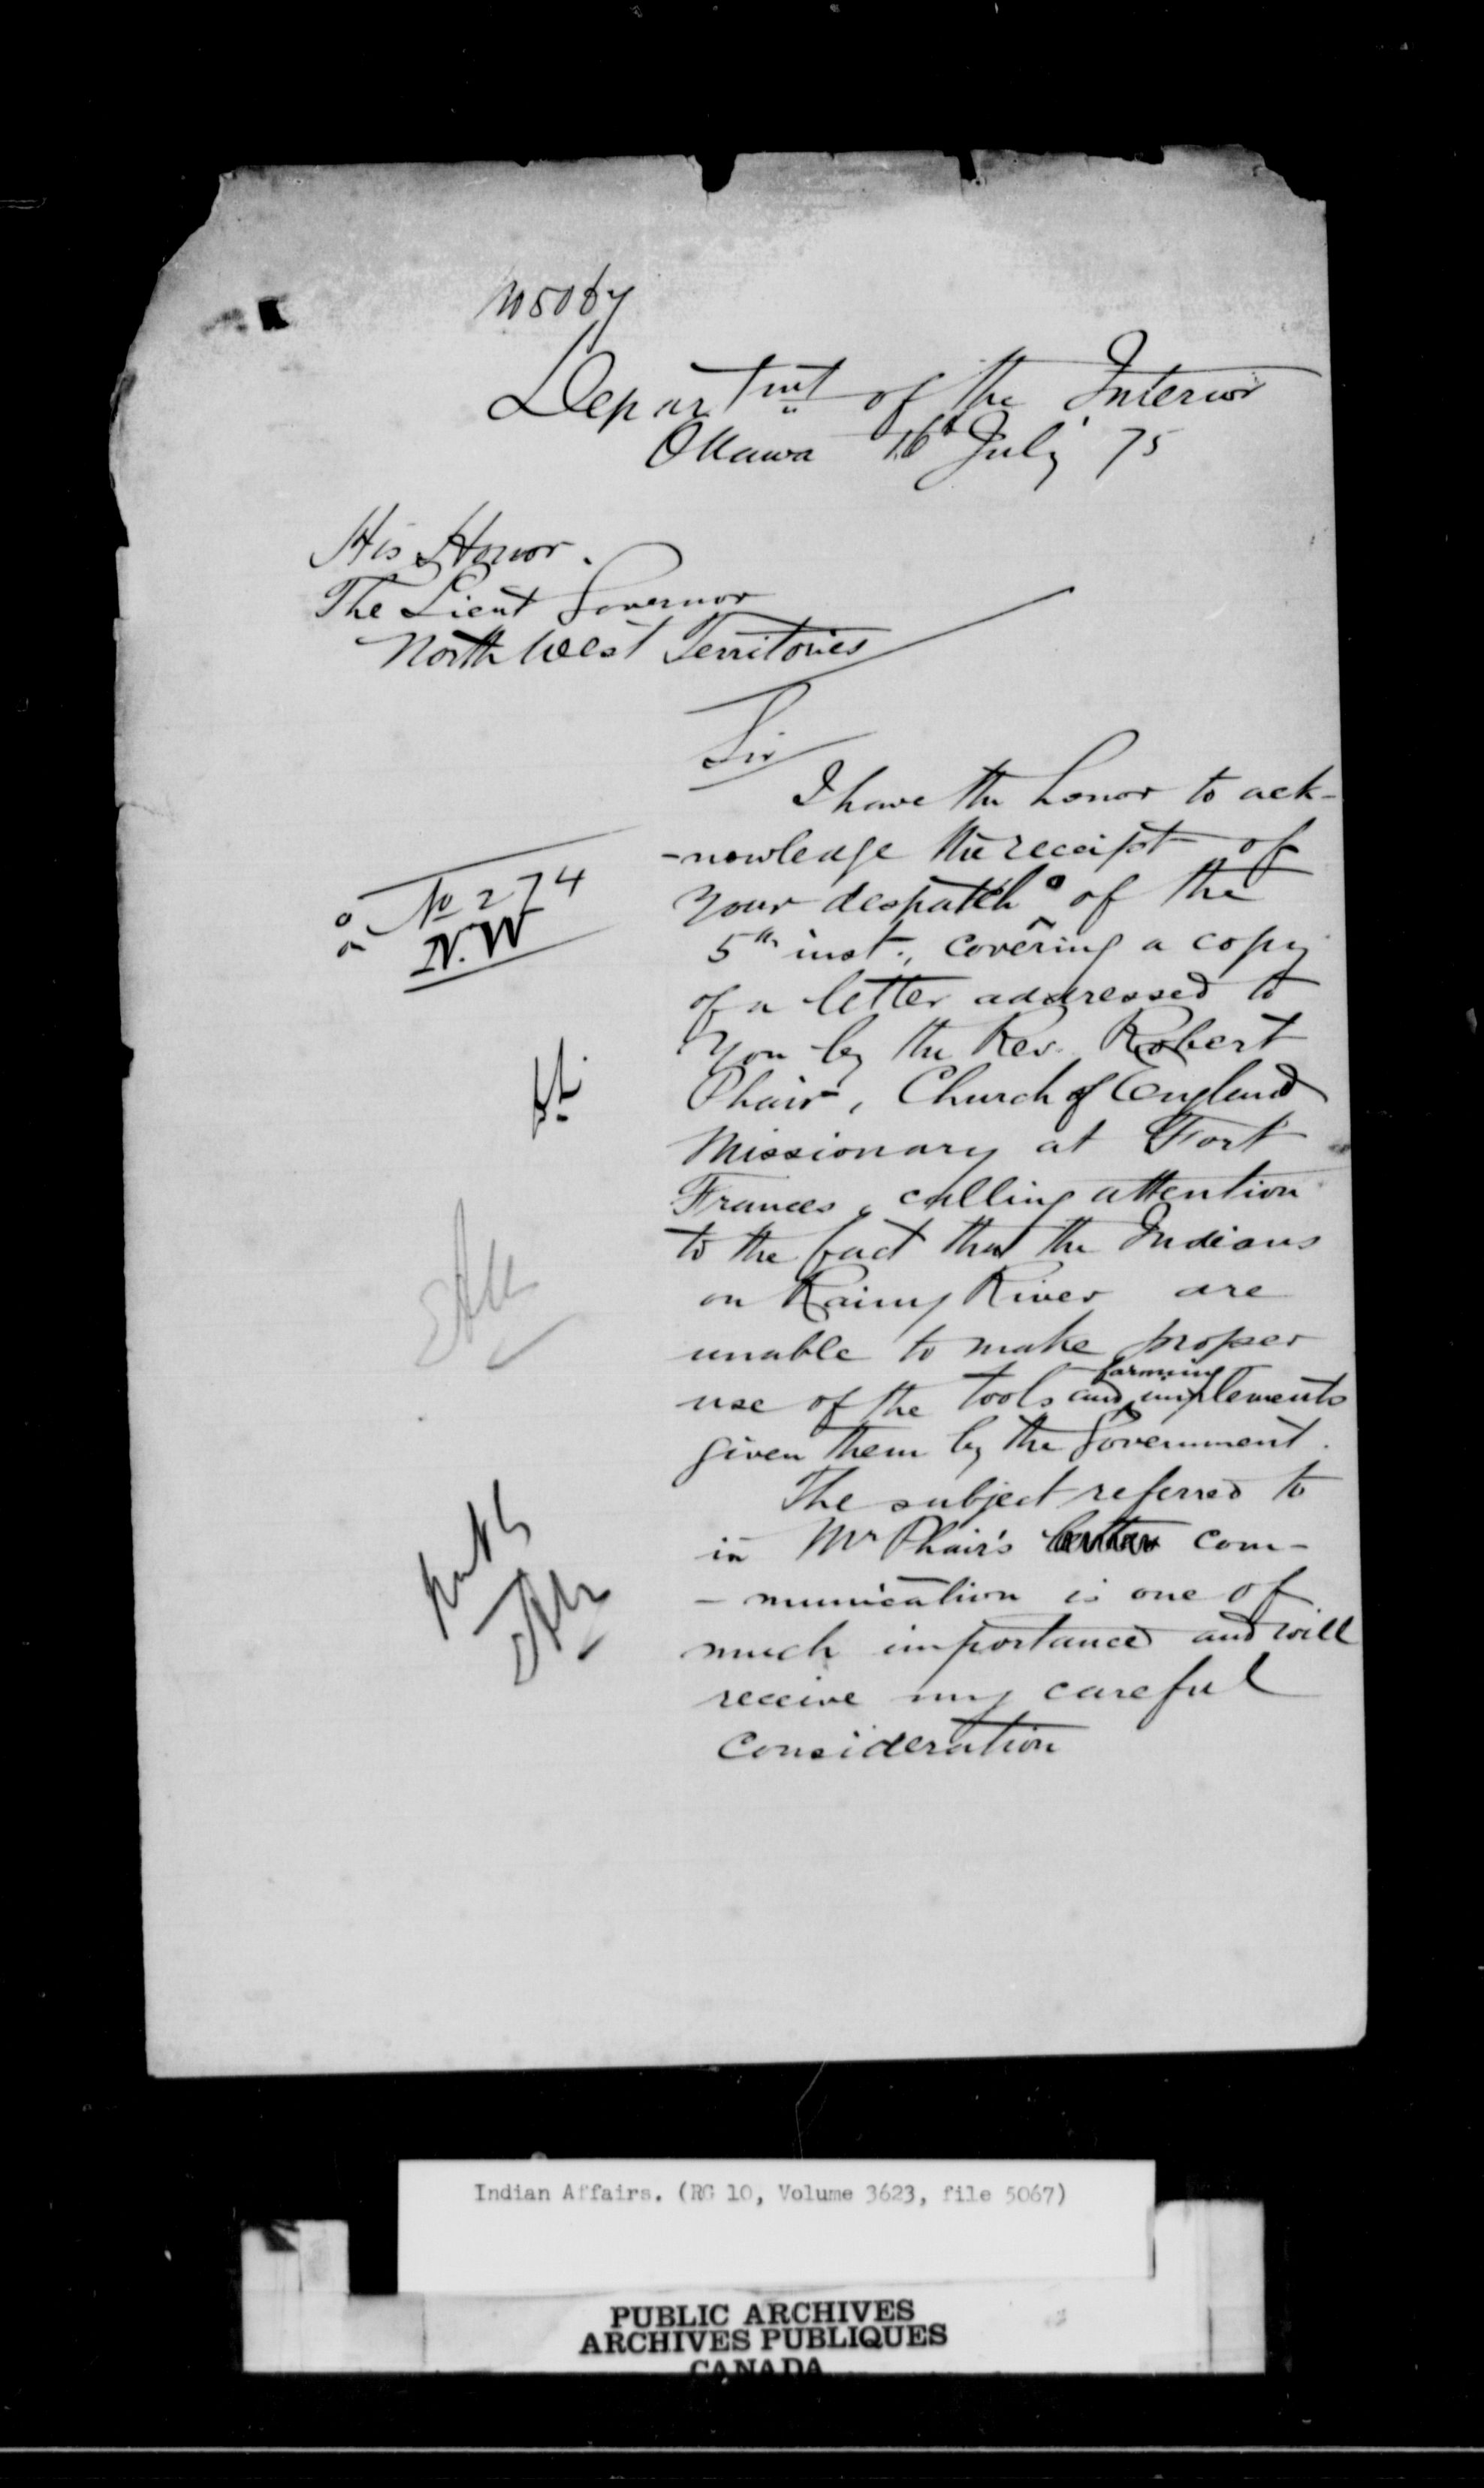 No 5067
Departmt of the Interior
Ottawa 16th July 75
His Honor
The Lieut Governor
North West Territories
Sir
I have the honor to ack-
-nowledge the receipt of
No 274
N.W
your despatch of the
5th inst., covering a copy
of a letter addressed to
you by the Rev. Robert
Phair, Church of England
Missionary at Fort
Frances, calling attention
to the fact that the Indians
on Rainy River are
unable to make proper
use of the tools and farming implements
given them by the Government.
The subject referred to
in Mr Phair's com-
-munication is one of
much importance and will
receive my careful
consideration
Indian Affairs. (RG 10, Volume 3623, file 5067)
PUBLIC ARCHIVES
ARCHIVES PUBLIQUES
CANADA